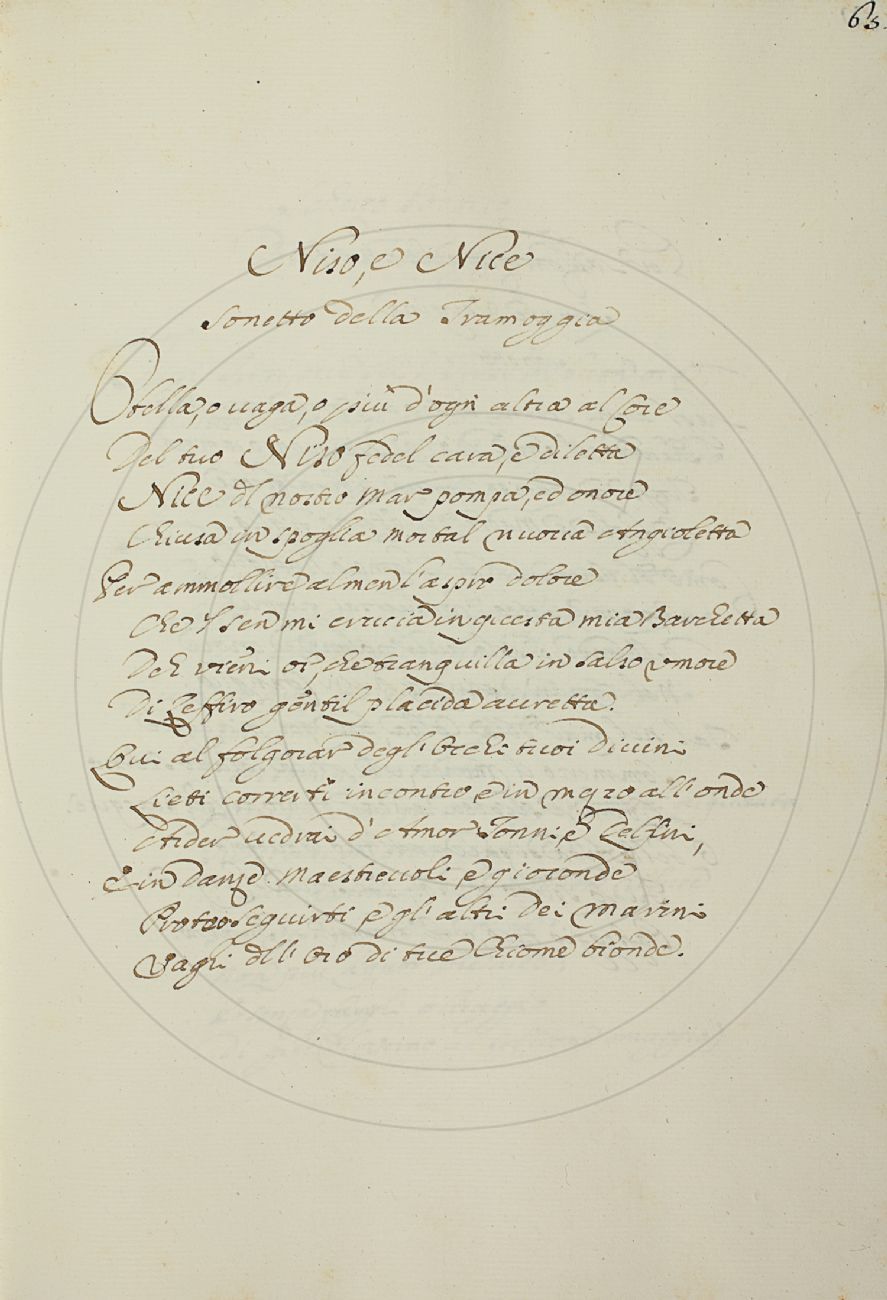 65.
Niso, e Nice
Sonetto della Tramoggia
O bella, o vaga, o più d'ogn altra al Core
Del tuo Niso fedel cara, e diletta
Nice del nostro mar pompa, ed onore
Chiusa in spoglia mortal nuova Angioletta
Per ammollire almen l'aspro dolore
Che 'l sen mi cruccia in questa mia Barchetta
Deh vieni or, che tranquilla in salso umore
Di Zeffiro gentil placida auretta.
Qui al folgorar degl'Occhi tuoi Divini
Lieti correrti incontro, e in mezo all'onde
Arder vedrai d'Amor Tonni, e Delfini,
E in danze maestrevoli, e gioconde
Proteo seguirti, e gl'altri Dei marini
Vaghi dell'Oro di tue Chiome bionde.